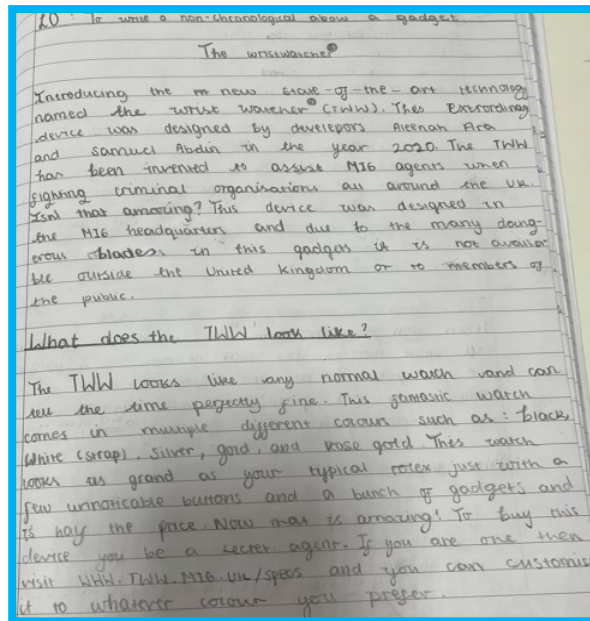 LO: To write a non-chronological about a gadget
The wristwatcher
Introducing the new state-of-the-art technology
named the wrist watcher (TWW). This Extrordinay
device was designed by develepors Aleenah Ara
and samuel Abdin in the year 2020. The TWW
has been invented to assist MI6 agents when
fighting criminal organisations all around the UK.
Isnt that amazing? This device was designed in
the MI6 headquarters and due to the many dang-
erous blades in this gadges it is not availac
ble outside the United Kingdom or to members of
the public.
What does the TWW look like?
The TWW looks like any normal watch and can
tell the time perfectly fine. This fantastic watch
comes in multiple different colours such as: black,
white (strap), silver, gold, and rose gold. This watch
looks as grand as your typical rolex just with a
few unnoticable buttons and a bunch of gadgets and
is hay the price. Now that is amazing! To buy this
device you be a secret agent. If you are one then
visit WWW.TWW.MI6.UK/specs and you can customis
it to whatever colour you prefer.